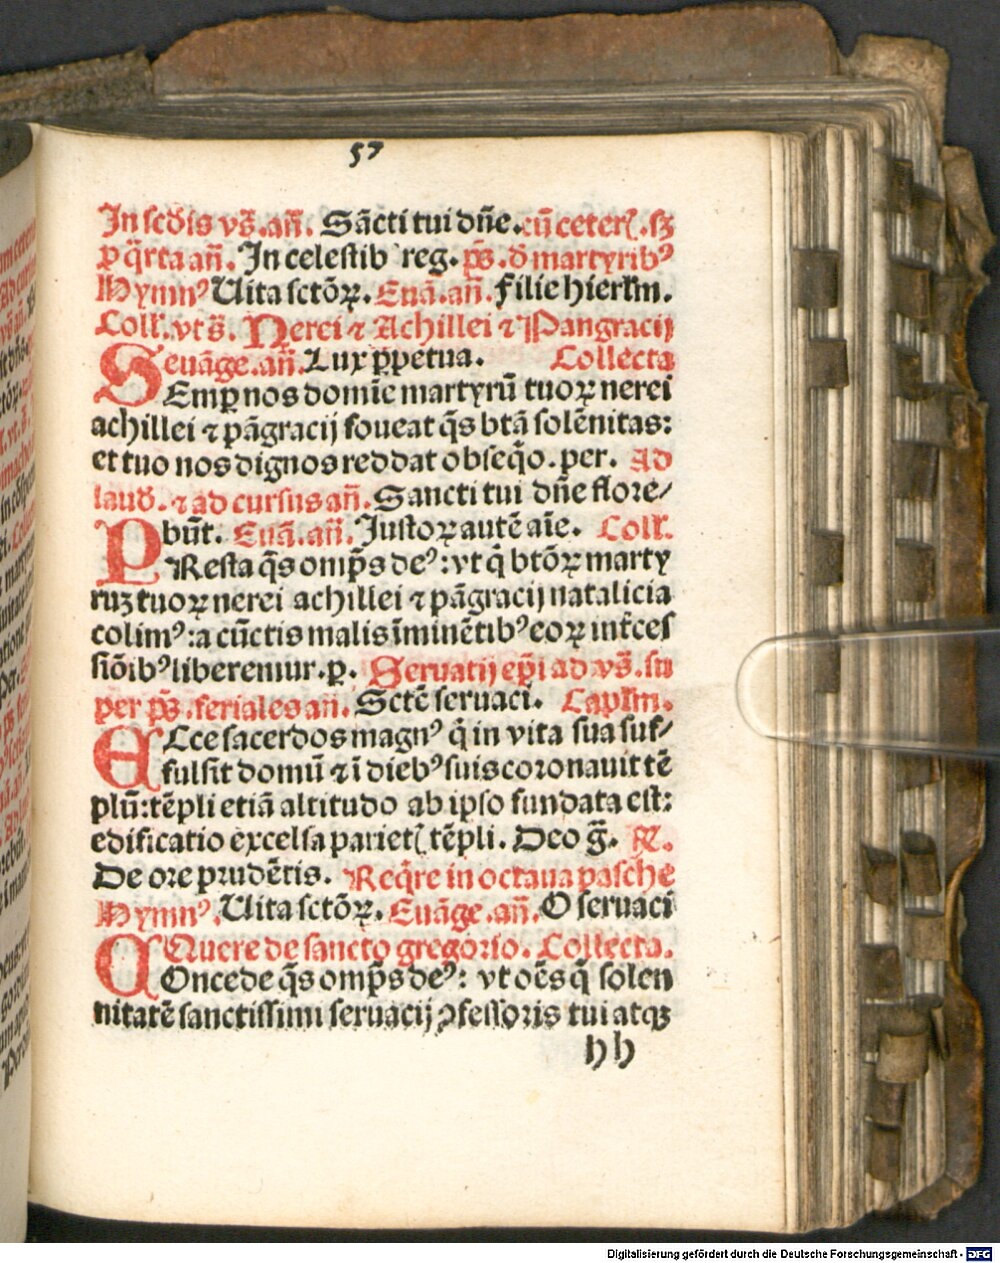 57
In scd̄is vs̄. an̄. Sācti tui dn̄e. cū ceterꝭ. sꝫ
p q̄rta an̄. In celestib reg. ps̄. d̄ martyribꝰ
Hymnꝰ Uita sctōꝝ. Euā. an̄. Filie hierl̄m.
Coll̄. vt s̄. Nerei ⁊ Achillei ⁊ Pangracij
euāge. an̄. Lux ꝑpetua. Collecta
SEmꝑ nos domīe martyrū tuoꝝ nerei
achillei ⁊ pāgracij foueat q̄s btā solēnitas:
et tuo nos dignos reddat obseq̄o. per. Ad
laud̄. ⁊ ad cursus an̄. Sancti tui dn̄e flore⸗
būt. Euā. an̄. Justoꝝ autē aīe. Coll̄.
PResta q̄s omp̄s deꝰ: vt q̄ btōꝝ marty
ruꝫ tuoꝝ nerei achillei ⁊ pāgracij natalicia
colimꝰ: a cūctis malis īminētibꝰ eoꝝ int̄ces
siōibꝰ liberemur. ꝑ. Seruatij ep̄i ad vs̄. su
per ps̄. feriales an̄. Sctē seruaci. Capl̄m.
ECce sacerdos magnꝰ q̄ in vita sua suf⸗
fulsit domū ⁊ ī diebꝰ suis coronauit tē
plū: tēpli etiā altitudo ab ipso fundata est:
edificatio excelsa parietꝭ tēpli. Deo ḡ. ꝶ.
De ore prudētis. Req̄re in octaua pasche
Hymnꝰ. Uita sctōꝝ. Euāge. an̄. O seruaci
Quere de sancto gregorio. Collecta.
COncede q̄s omp̄s deꝰ: vt oēs q̄ solen
nitatē sanctissimi seruacij ꝯfessoris tui atqꝫ
hh
Digitalisierung gefördert durch die Deutsche Forschungsgemeinschaft - DFG